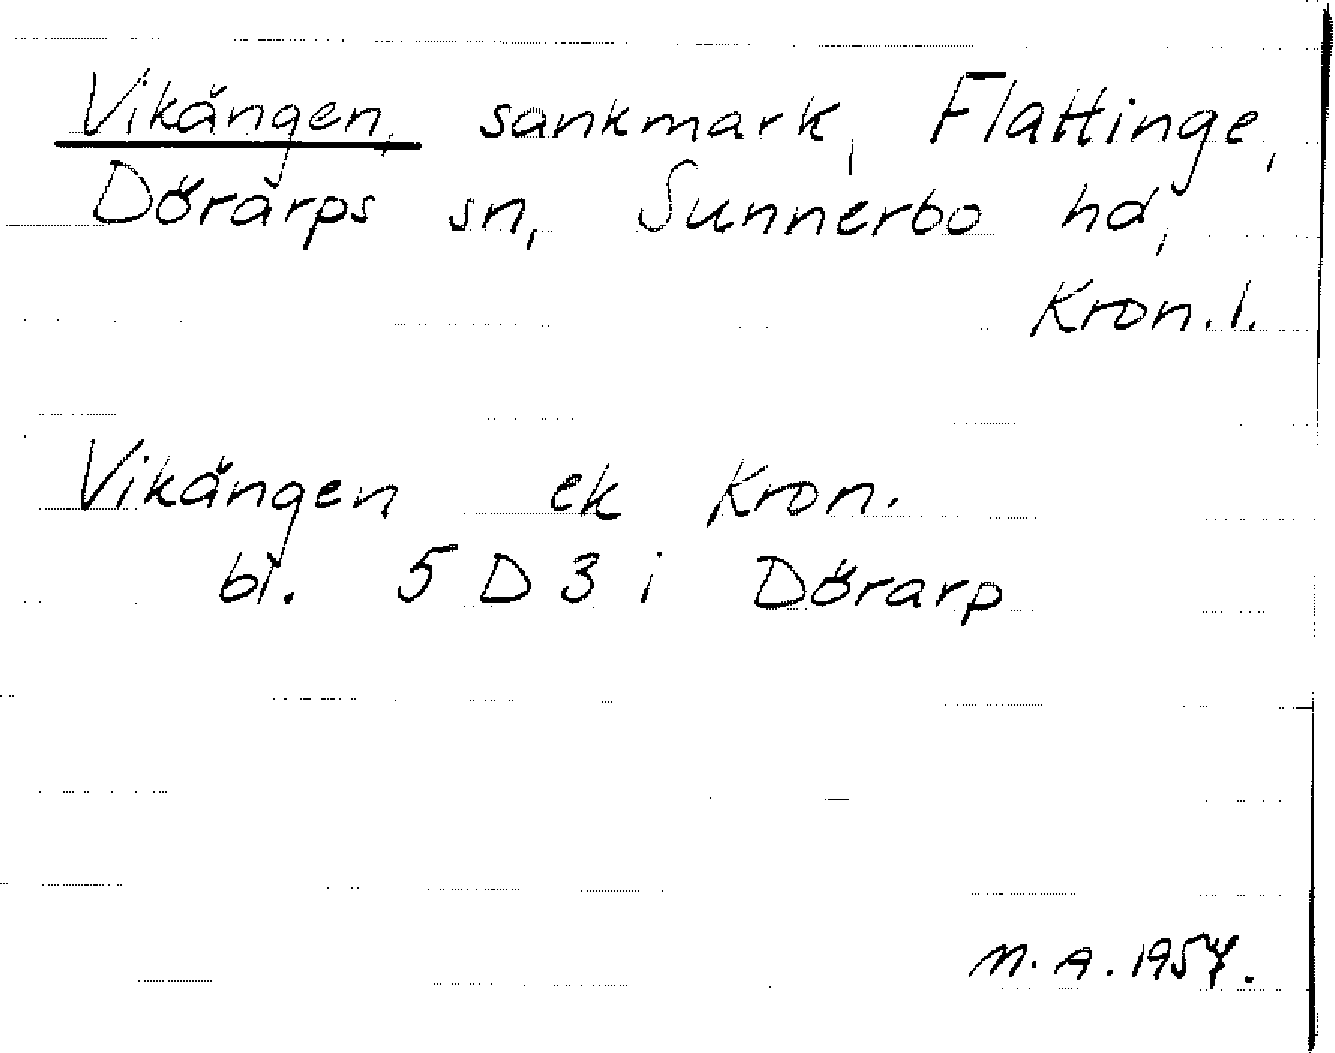 Vikängen, sankmark, Flattinge,
Dörarps sn, Sunnerbo hd,
Kron. l.
Vikängen ek Kron.
bl. 5 D 3 i Dörarp
M. A. 1954.